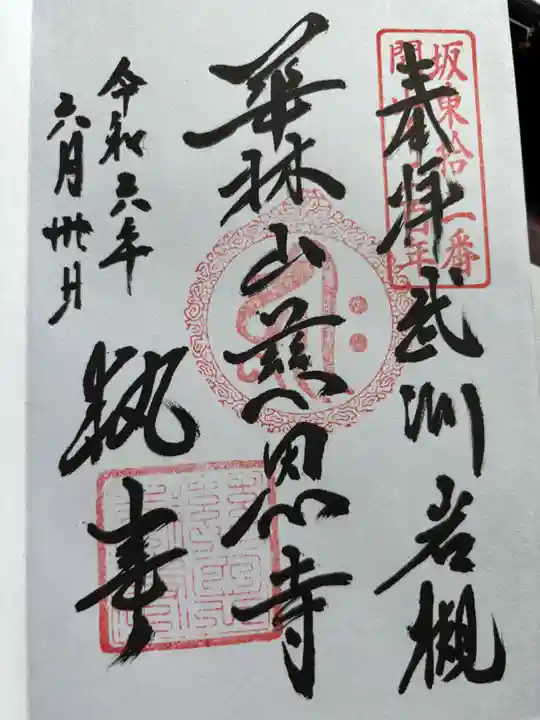 坂東拾二番
奉拝武州岩槻
華林山慈恩寺
令和六年
六月卅日
執事